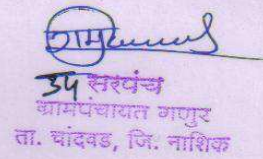 उप सरपंच
ग्रामपंचायत गणुर
ता. चांदवड, जि. नाशिक